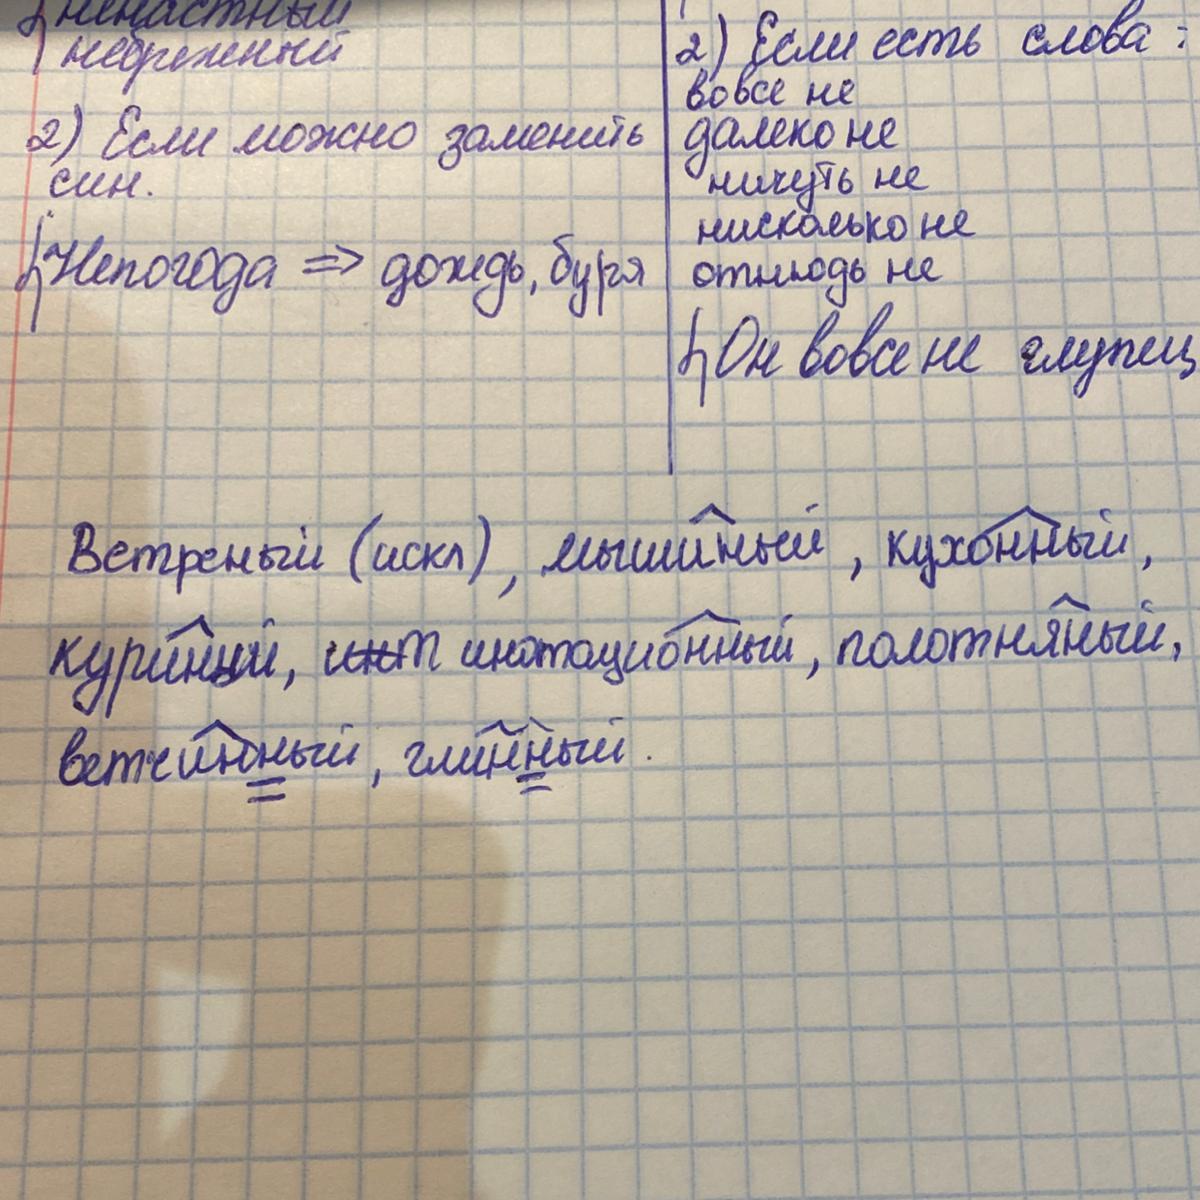 ненастный
небрежный
2) Если можно заменить
син.
Непогода => дождь, буря
2) Если есть слова :
вовсе не
далеко не
ничуть не
нисколько не
отнюдь не
Он вовсе не глупец
Ветреный (искл), мышиный, кухонный,
куриный, инотационный, полотняный,
ветчинный, глинный.